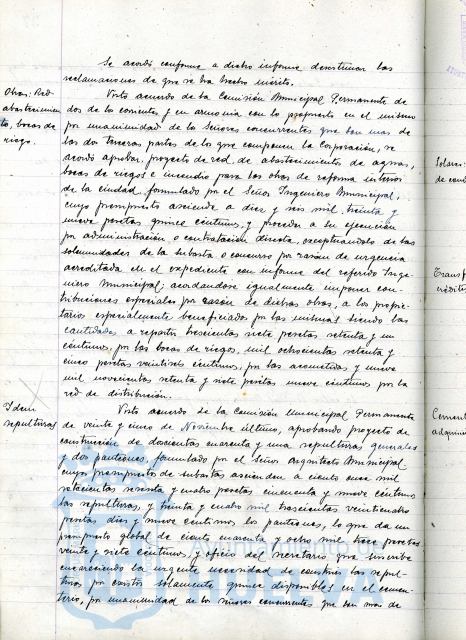 Se acordó conforme a dicho informe desestimar las
reclamaciones de que se ha hecho mérito.
Obras: Red
abastecimien
to, bocas de
riego.
Visto acuerdo de la Comisión Municipal Permanente de
dos de los corrientes y en armonía con lo propuesto en el mismo
por unanimidad de los Señores concurrentes que son mas de
las dos terceras partes de los que componen la Corporación, se
acordó aprobar proyecto de red de abastecimientos de aguas,
bocas de riegos e incendio para las obras de reforma interior
de la ciudad formulado por el Señor Ingeniero Municipal,
cuyo presupuesto asciende a diez y seis mil, treinta y
nueve pesetas quince céntimos, y proceder a su ejecución
por administración o contratación directa, exceptuándolo de las
solemnidades de la subasta o concurso por razón de urgencia
acreditada en el expediente con informe del referido Inge-
niero Municipal; acordándose igualmente imponer con-
tribuciones especiales por razón de dichas obras, a los propie-
tarios especialmente beneficiados por las mismas siendo las
cantidades a repartir trescientas siete pesetas setenta y un
céntimos, por las bocas de riegos, mil ochocientas setenta y
cinco pesetas veintiseis céntimos, por las acometidas y nueve
mil novecientas setenta y siete pesetas nueve céntimos por la
red de distribución.
Idem
sepulturas
Visto acuerdo de la Comisión Municipal Permanente
de veinte y cinco de Noviembre último, aprobando proyecto de
construcción de doscientas cuarenta y una sepulturas generales
y dos panteones, formulado por el Señor Arquitecto Municipal
cuyo presupuesto de subastas ascienden a ciento once mil
setecientas sesenta y cuatro pesetas cincuenta y nueve céntimos
las sepulturas, y treinta y cuatro mil trescientas veinticuatro
pesetas diez y nueve céntimos los panteones, lo que da un
presupuesto global de ciento cuarenta y ocho mil trece pesetas
veinte y siete céntimos y oficio del Secretario que suscribe
encareciendo la urgente necesidad de construir las sepul-
turas por existir solamente quince disponibles en el cemen-
terio, por unanimidad de los Señores concurrentes que son mas de
Solares:
Transf
crédito
HUELVA